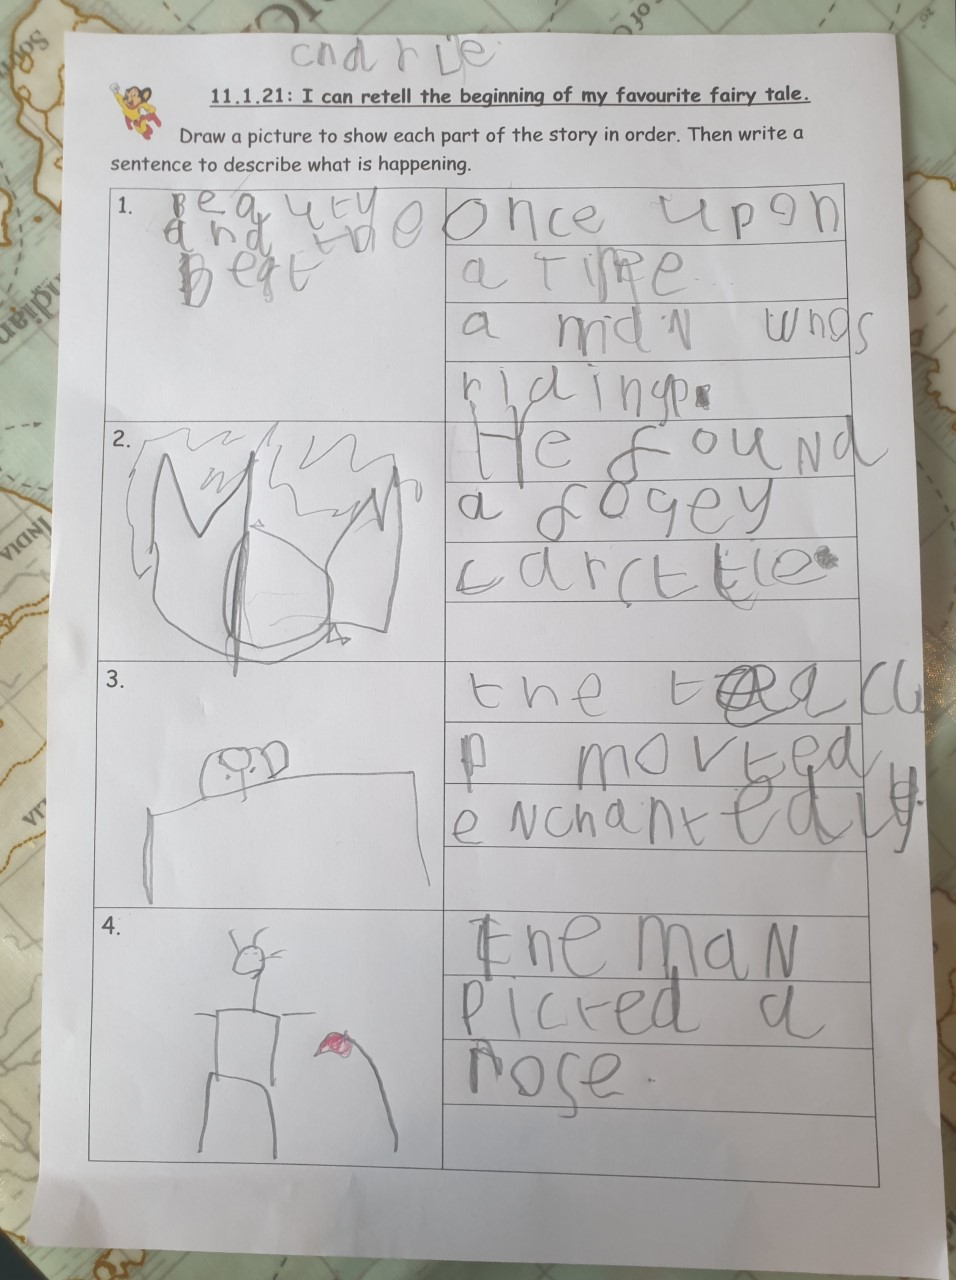 cnarlie
11.1.21: I can retell the beginning of my favourite fairy tale.
Draw a picture to show each part of the story in order. Then write a
sentence to describe what is happening.
1.
Beauty
and the
Beat
Once upon
a time
a man whos
riding.
2.
He found
a fogey
carctle.
3.
the teacu
p movted
enchantedly.
4.
the man
picred a
rose.